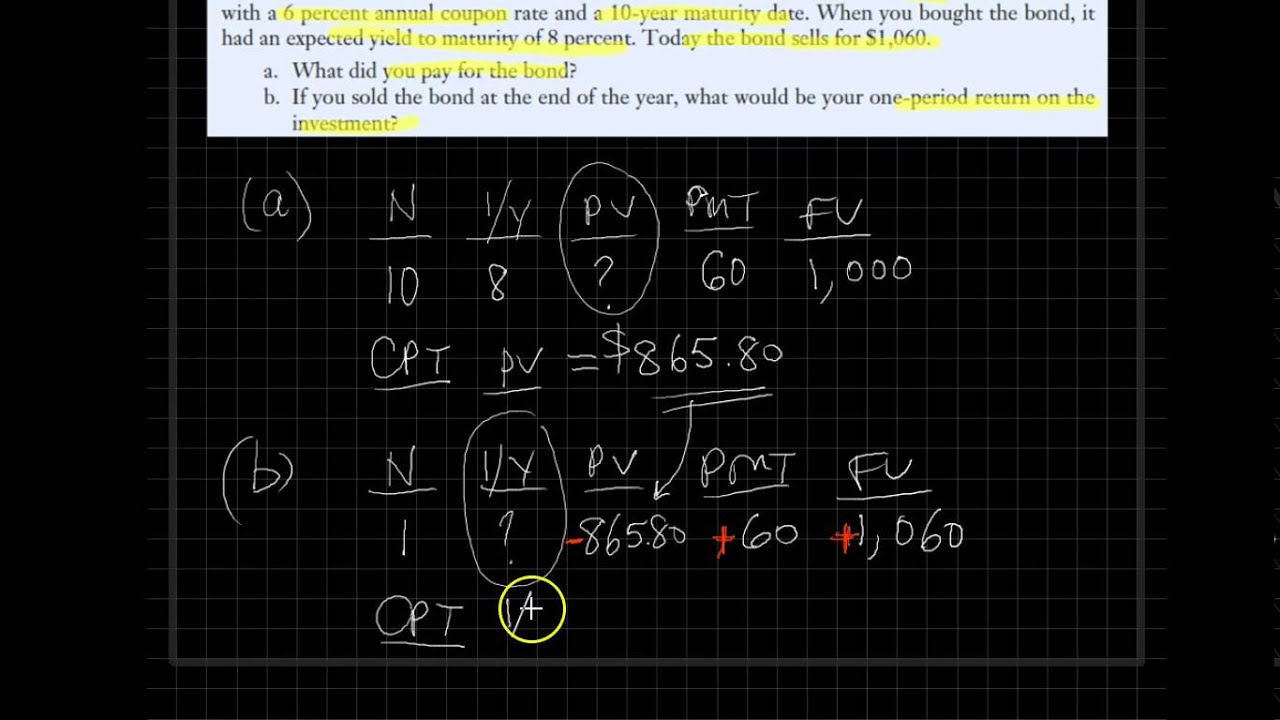 with a 6 percent annual coupon rate and a 10-year maturity date. When you bought the bond, it
had an expected yield to maturity of 8 percent. Today the bond sells for $1,060.
a. What did you pay for the bond?
b. If you sold the bond at the end of the year, what would be your one-period return on the
investment?
(a) N I/Y PV PMT FV
10 8 ? 60 1,000
CPT PV = $865.80
(b) N I/Y PV PMT FV
1 ? -865.80 +60 +1,060
CPT